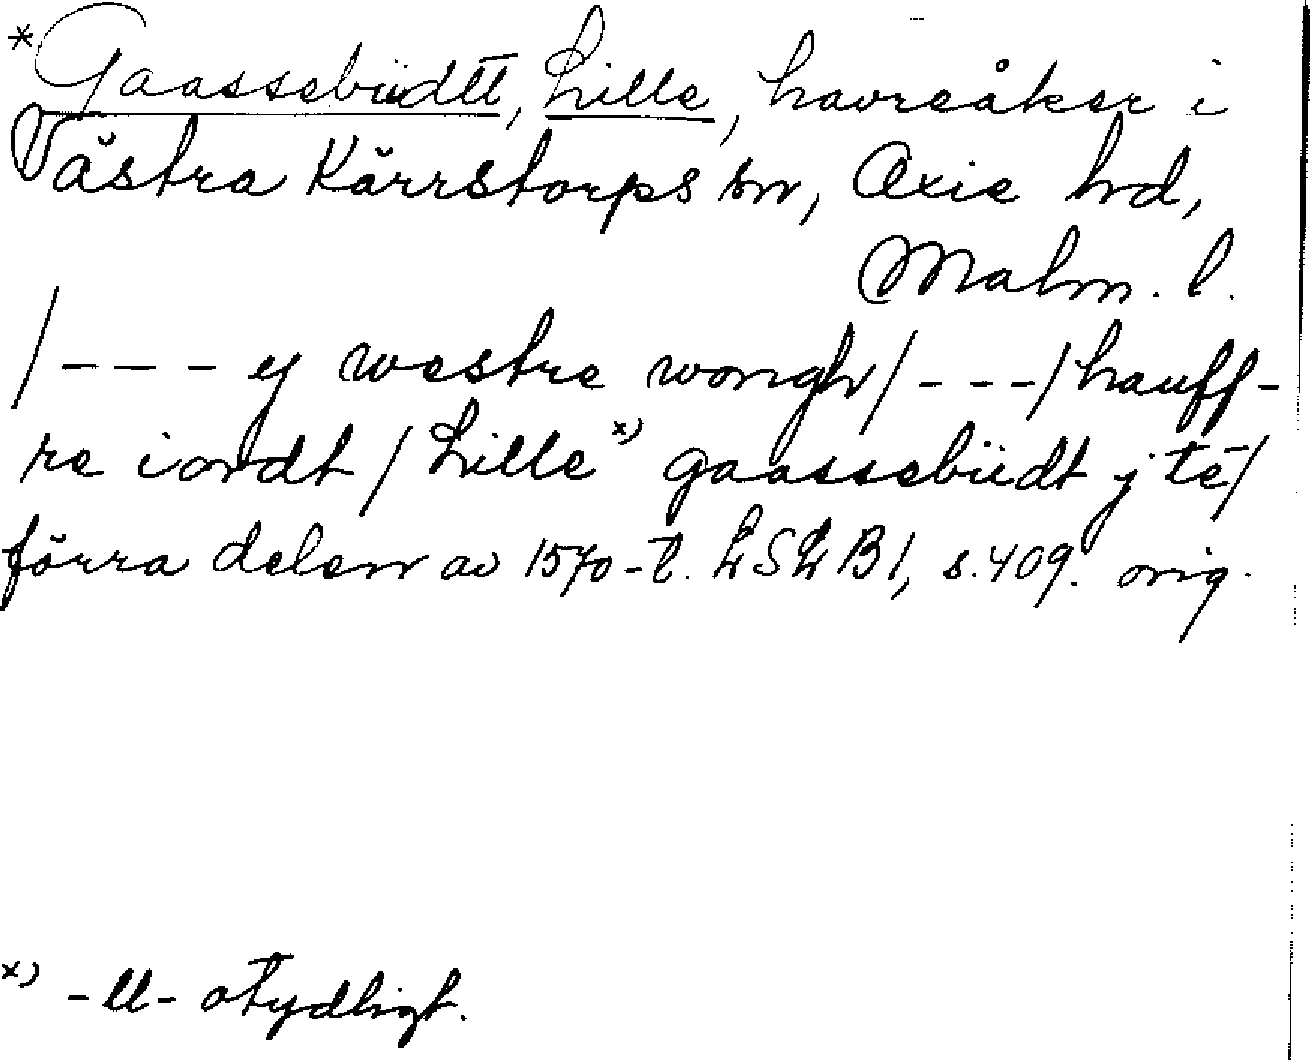 *Gaassebüdtt, Lille, havreåker i
Västra Kärrstorps sn, Oxie hd,
Malm. l.
/---- ej westre wongh/---/hauff-
re iordt/Lille x) gaassebüdt j te/
förra delen av 1570-t. LSLB1, s.409. orig.
x) -ll- otydligt.